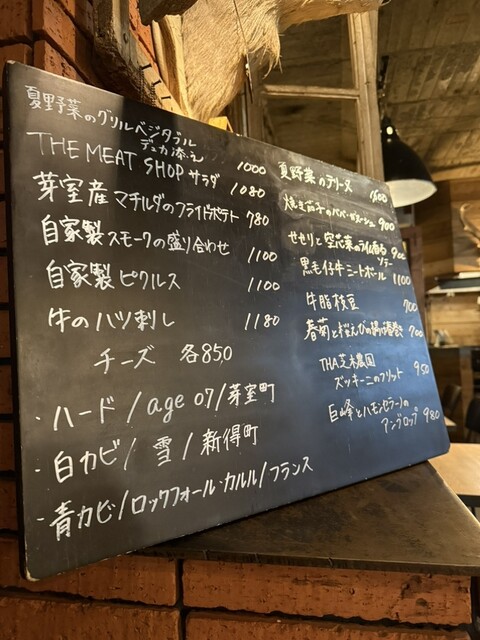 夏野菜のグリルベジタブル
デュカ添え 1000
THE MEAT SHOP サラダ 1080
芽室産 マチルダのフライドポテト 780
自家製 スモークの盛り合わせ 1100
自家製 ピクルス 1100
牛のハツ刺し 1180
チーズ 各850
・ハード / age 07 / 芽室町
・白カビ / 雪 / 新得町
・青カビ / ロックフォール・カルル / フランス
夏野菜のテリーヌ
焼き茄子のババガヌーシュ 900
せせりと空芯菜の
ソテー
黒毛仔牛ミートボール 1100
牛脂枝豆 700
春菊と桜えびの 700
THA芝木農園
ズッキーニのフリット 950
巨峰とハモンセラーノの
アングロップ 980